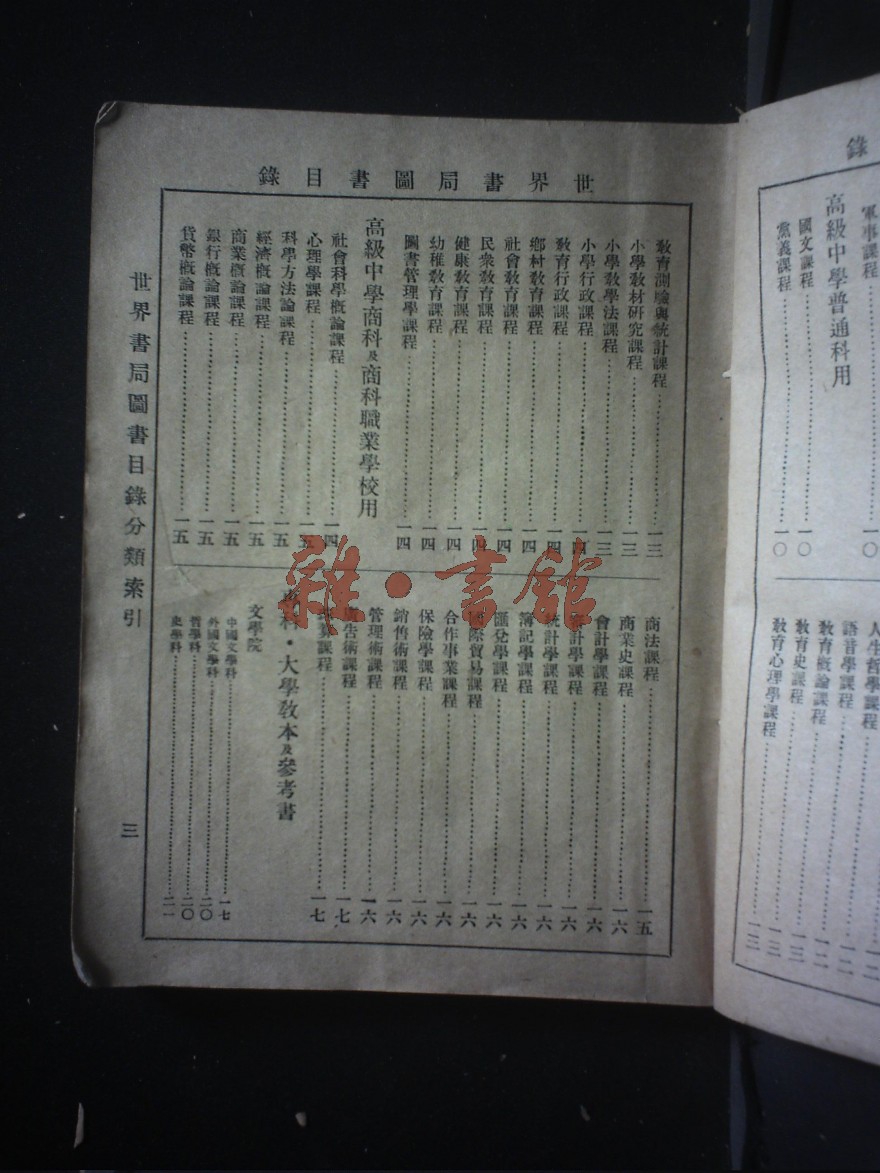 錄
軍事課程 一〇
高級中學普通科用
國文課程 一〇
黨義課程 一〇
人生哲學課程
語音學課程 一二
教育概論課程 一二
教育史課程 一三
教育心理學課程 一三
世界書局圖書目錄
教育測驗與統計課程 一三
小學教材研究課程 一三
小學教學法課程 一三
小學行政課程 一四
教育行政課程 一四
鄉村教育課程 一四
社會教育課程 一四
民衆教育課程 一四
健康教育課程 一四
幼稚教育課程 一四
圖書管理學課程 一四
高級中學商科及商科職業學校用
社會科學概論課程 一四
心理學課程 一五
科學方法論課程 一五
經濟概論課程 一五
商業概論課程 一五
銀行概論課程 一五
貨幣概論課程 一五
商法課程 一五
商業史課程 一六
會計學課程 一六
計學課程 一六
統計學課程 一六
簿記學課程 一六
匯兌學課程 一六
國際貿易課程 一六
合作事業課程 一六
保險學課程 一六
銷售術課程 一六
管理術課程 一六
廣告術課程 一七
算課程 一七
專科·大學教本及參考書
文學院
中國文學科 一七
外國文學科 二〇
哲學科 二〇
史學科 二一
世界書局圖書目錄分類索引
三
雜·書館